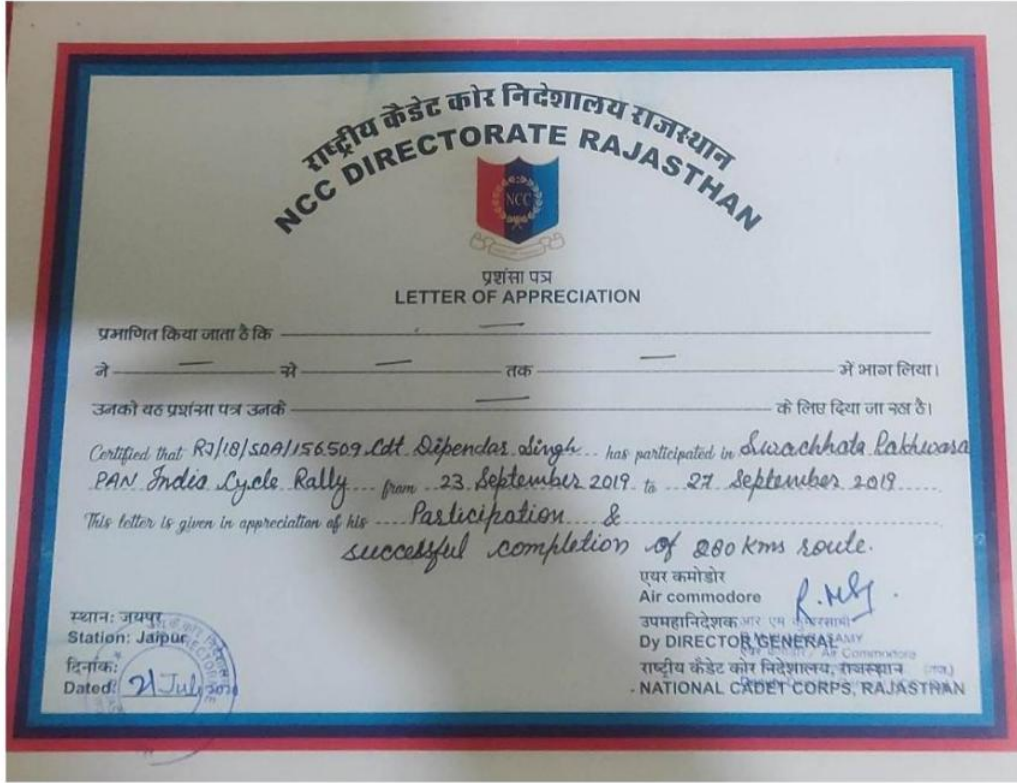 राष्ट्रीय कैडेट कोर निदेशालय राजस्थान
NCC DIRECTORATE RAJASTHAN
NCC
प्रशंसा पत्र
LETTER OF APPRECIATION
प्रमाणित किया जाता है कि
ने से तक में भाग लिया।
उनको यह प्रशंसा पत्र उनके के लिए दिया जा रहा है।
Certified that RJ/18/SDA/156509 Cdt Dipendar Singh has participated in Swachhata Pakhwara
PAN India Cycle Rally from 23 September 2019 to 27 September 2019
This letter is given in appreciation of his Participation &
successful completion of 280 kms route.
एयर कमोडोर
Air commodore
उपमहानिदेशक
Dy DIRECTOR GENERAL
राष्ट्रीय कैडेट कोर निदेशालय, राजस्थान
NATIONAL CADET CORPS, RAJASTHAN
स्थान: जयपुर
Station: Jaipur
दिनांक:
Dated: 21 July